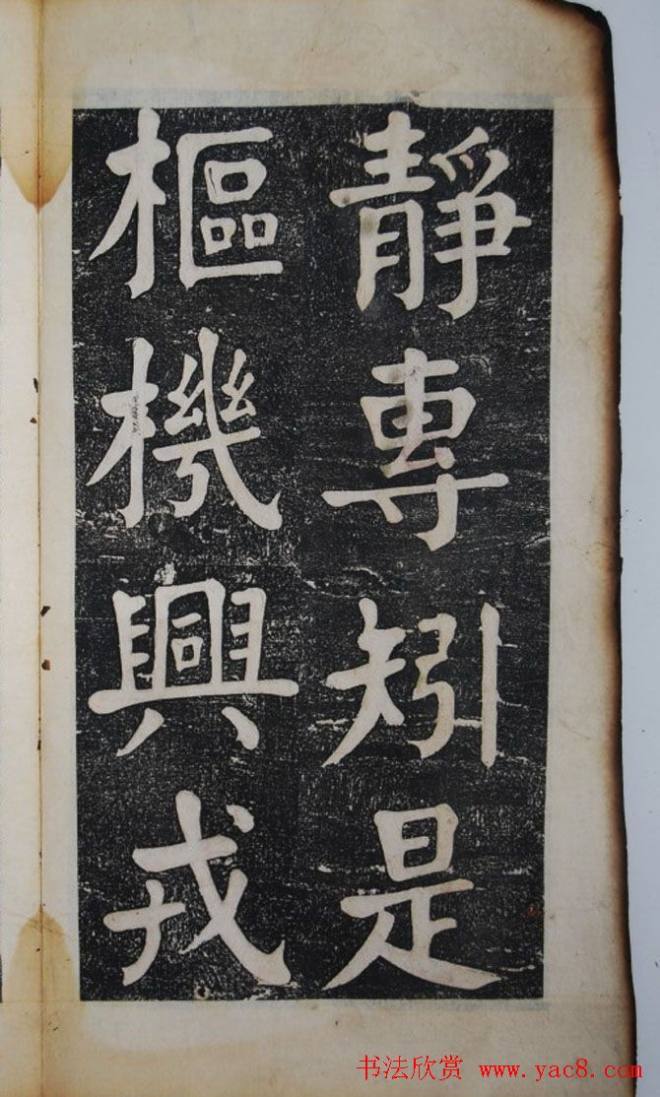 靜專矧是
樞機興戎
书法欣赏 www.yac8.com